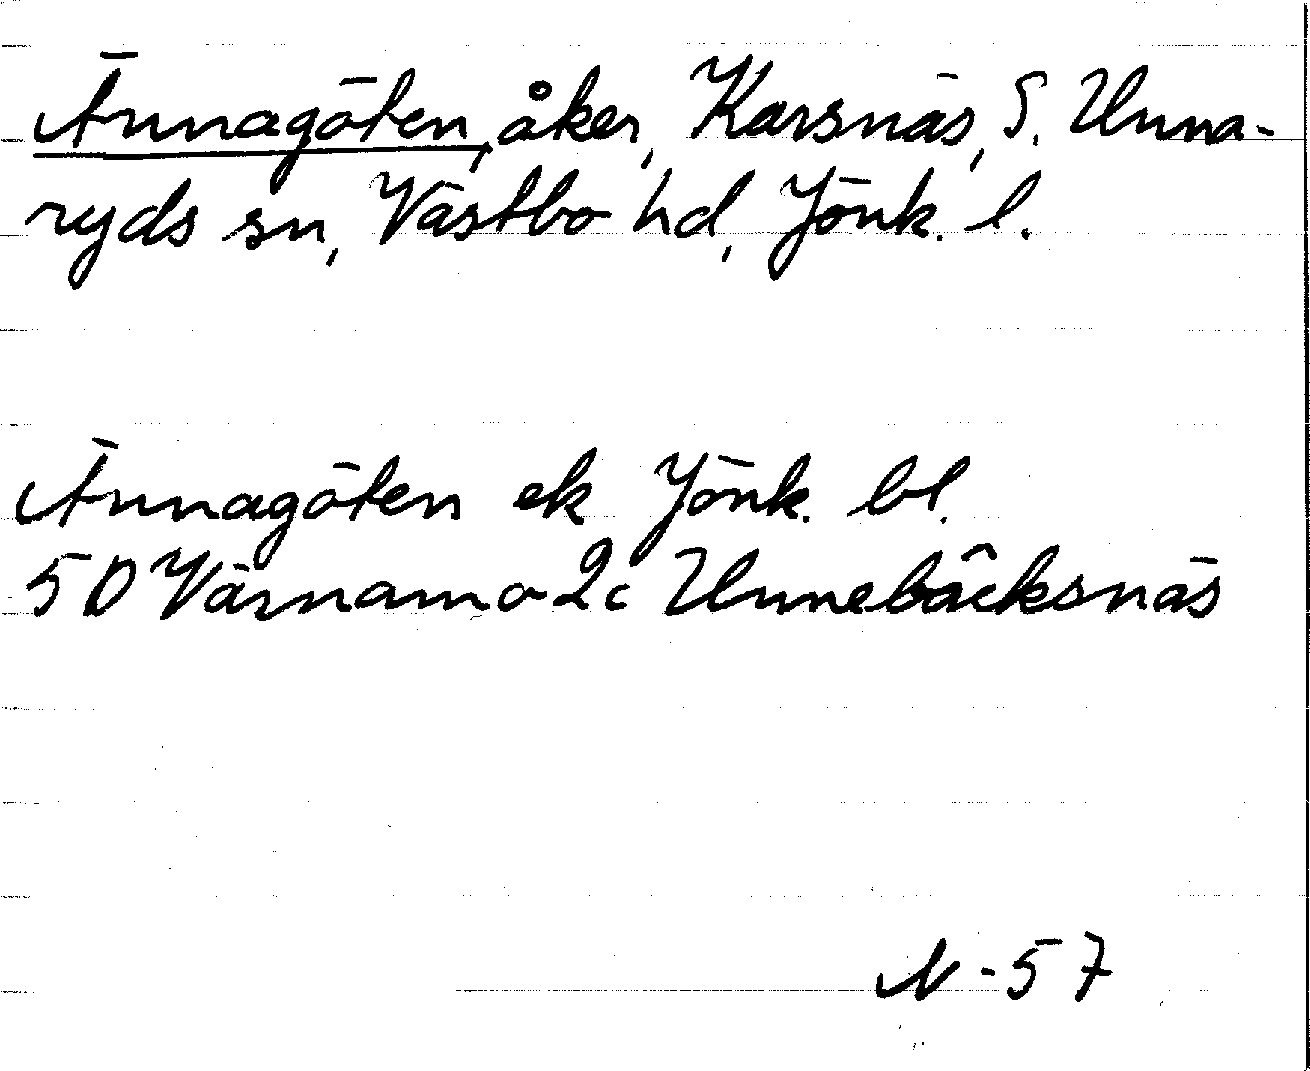 Ännagöten, åker, Karsnäs, S. Unna-
ryds sn, Västbo hd, Jönk. l.
Ännagöten ek Jönk. bl.
5D Värnamo 2c Unnebäcksnäs
N-57